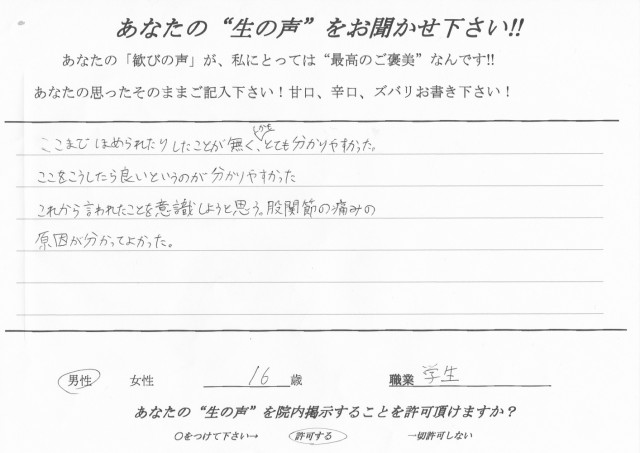 あなたの“生の声”をお聞かせ下さい!!
あなたの「歓びの声」が、私にとっては“最高のご褒美”なんです!!
あなたの思ったそのままご記入下さい！甘口、辛口、ズバリお書き下さい！
ここまでほめられたりしたことが無く、とても分かりやすかった。
ここをこうしたら良いというのが分かりやすかった
これから言われたことを意識しようと思う。股関節の痛みの
原因が分かってよかった。
男性 女性 16 歳 職業 学生
あなたの“生の声”を院内掲示することを許可頂けますか？
○をつけて下さい→ 許可する 一切許可しない